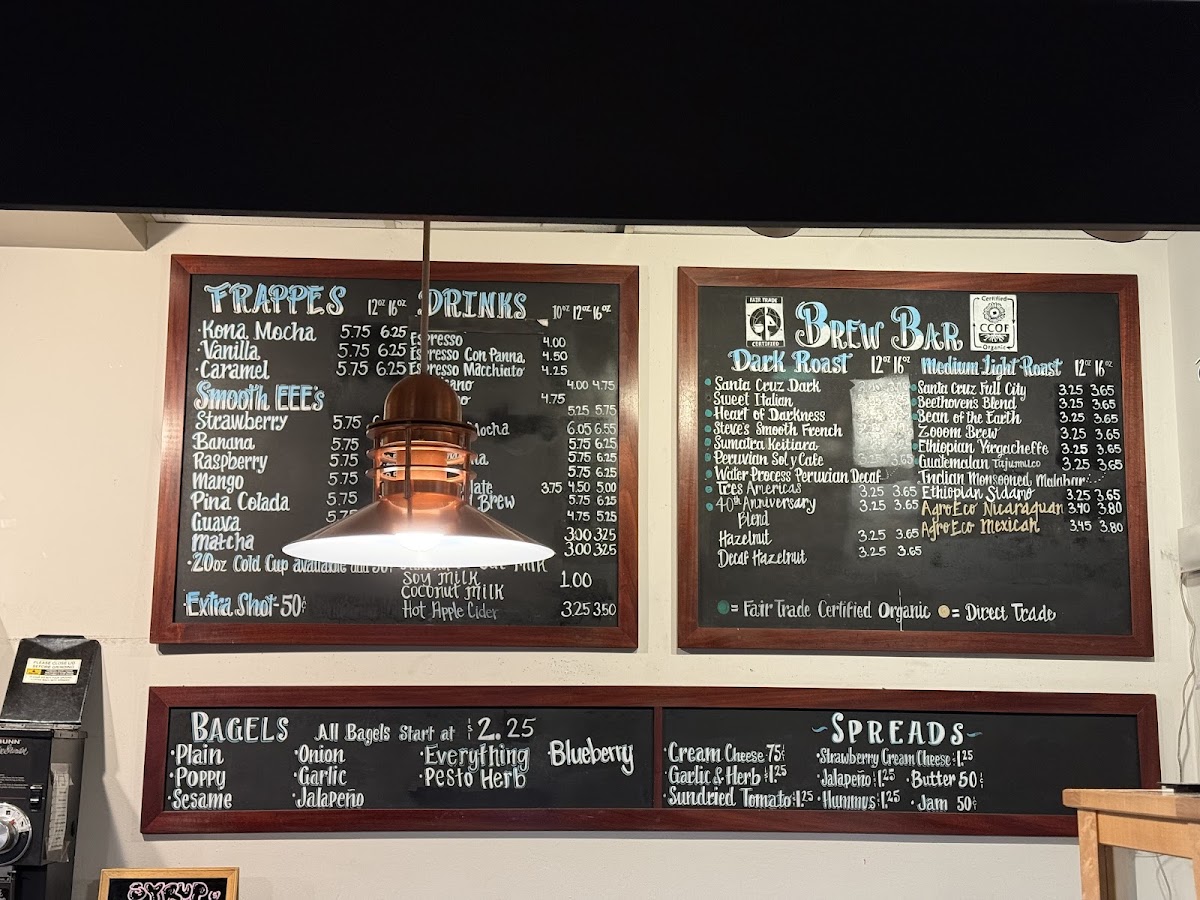 FRAPPES 12oz 16oz
·Kona Mocha 5.75 6.25
·Vanilla 5.75 6.25
·Caramel 5.75 6.25
Smooth EEE's
Strawberry 5.75
Banana 5.75
Raspberry 5.75
Mango 5.75
Pina Colada 5.75
Guava
Matcha
·20oz Cold Cup available
Extra Shot-50¢
DRINKS 10oz 12oz 16oz
Espresso 4.00
Espresso Con Panna 4.50
Espresso Macchiato 4.25
4.00 4.75
4.75
5.25 5.75
Mocha 6.05 6.55
5.75 6.25
5.75 6.25
5.75 6.25
3.75 4.50 5.00
Brew 5.75 6.25
4.75 5.25
3.00 3.25
3.00 3.25
Milk
Soy Milk 1.00
Coconut Milk
Hot Apple Cider 3.25 3.50
FAIR TRADE
CERTIFIED
BREW BAR
Certified
CCOF
Organic
DARK ROAST 12oz 16oz
Santa Cruz Dark
Sweet Italian
Heart of Darkness
Steve's Smooth French
Sumatra Keitiara
Peruvian Sol y Cafe
Water Process Peruvian Decaf
Tres Americas 3.25 3.65
40th Anniversary 3.25 3.65
Blend
Hazelnut 3.25 3.65
Decaf Hazelnut 3.25 3.65
Medium Light Roast 12oz 16oz
Santa Cruz Full City 3.25 3.65
Beethoven's Blend 3.25 3.65
Bean of the Earth 3.25 3.65
Zooom Brew 3.25 3.65
Ethiopian Yirgacheffe 3.25 3.65
Guatemalan Tajumulco 3.25 3.65
Indian Monsooned Malabar
Ethiopian Sidamo 3.25 3.65
AgroEco Nicaraguan 3.40 3.80
AgroEco Mexican 3.45 3.80
= Fair Trade Certified Organic = Direct Trade
BAGELS All Bagels Start at $2.25
·Plain
·Poppy
·Sesame
·Onion
·Garlic
·Jalapeño
·Everything
·Pesto Herb
·Blueberry
~SPREADS~
·Cream Cheese 75¢
·Garlic & Herb $1.25
·Sundried Tomato $1.25
·Strawberry Cream Cheese $1.25
·Jalapeño $1.25
·Hummus $1.25
·Butter 50¢
·Jam 50¢
BUNN
SYRUP